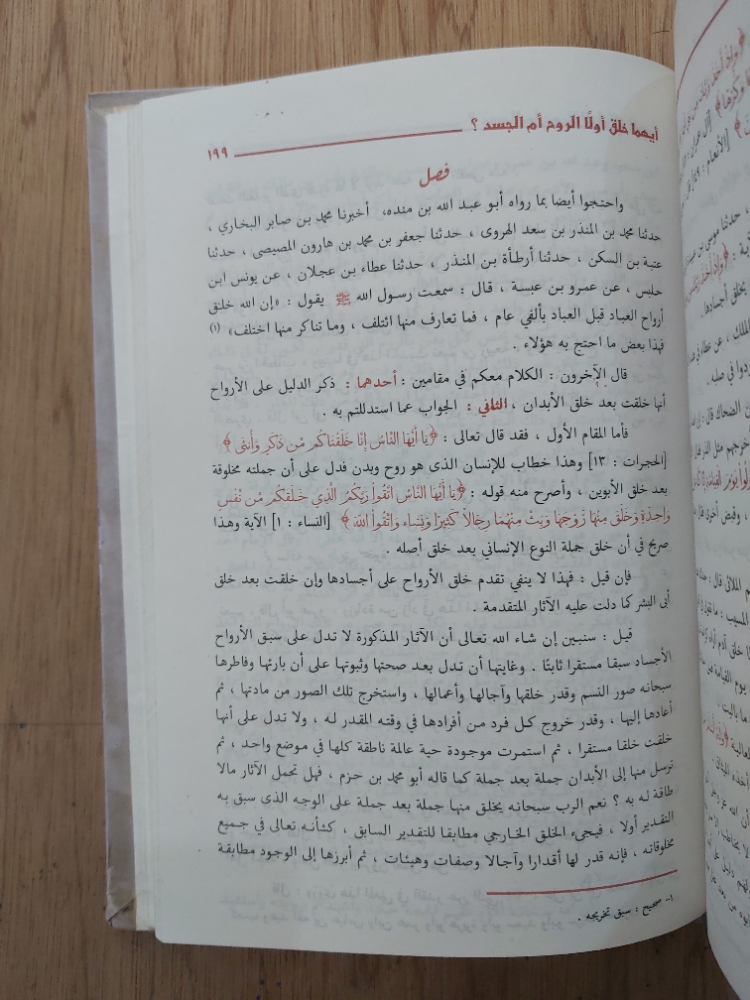 أيهما خلق أولًا الروح أم الجسد ؟
١٩٩
فصل
واحتجوا أيضا بما رواه أبو عبد الله بن منده، أخبرنا محمد بن صابر البخاري ،
حدثنا محمد بن المنذر بن سعد الهروى ، حدثنا جعفر بن محمد بن هارون المصيصى ، حدثنا
عتبة بن السكن ، حدثنا أرطأة بن المنذر ، حدثنا عطاء بن عجلان ، عن يونس ابن
حلبس ، عن عمرو بن عبسة ، قال : سمعت رسول الله ﷺ يقول : «إن الله خلق
أرواح العباد قبل العباد بألفي عام ، فما تعارف منها ائتلف ، وما تناكر منها اختلف» (١)
فهذا بعض ما احتج به هؤلاء .
قال الآخرون : الكلام معكم في مقامين : أحدهما : ذكر الدليل على الأرواح
أنها خلقت بعد خلق الأبدان ، الثاني : الجواب عما استدللتم به .
فأما المقام الأول ، فقد قال تعالى : ﴿يَا أَيُّهَا النَّاسُ إِنَّا خَلَقْنَاكُم مِّن ذَكَرٍ وَأُنثَى﴾
[الحجرات : ١٣] وهذا خطاب للإنسان الذى هو روح وبدن فدل على أن جملته مخلوقة
بعد خلق الأبوين ، وأصرح منه قوله : ﴿يَا أَيُّهَا النَّاسُ اتَّقُواْ رَبَّكُمُ الَّذِي خَلَقَكُم مِّن نَّفْسٍ
وَاحِدَةٍ وَخَلَقَ مِنْهَا زَوْجَهَا وَبَثَّ مِنْهُمَا رِجَالاً كَثِيرًا وَنِسَاء وَاتَّقُواْ اللّهَ﴾ [النساء : ١] الآية وهذا
صريح في أن خلق جملة النوع الإنساني بعد خلق أصله .
فإن قيل : فهذا لا ينفي تقدم خلق الأرواح على أجسادها وإن خلقت بعد خلق
أبى البشر كما دلت عليه الآثار المتقدمة .
قيل : سنبين إن شاء الله تعالى أن الآثار المذكورة لا تدل على سبق الأرواح
الأجساد سبقا مستقرا ثابتًا . وغايتها أن تدل بعد صحتها وثبوتها على أن بارئها وفاطرها
سبحانه صور النسم وقدر خلقها وآجالها وأعمالها ، واستخرج تلك الصور من مادتها ، ثم
أعادها إليها ، وقدر خروج كل فرد من أفرادها في وقته المقدر له ، ولا تدل على أنها
خلقت خلقا مستقرا ، ثم استمرت موجودة حية عالمة ناطقة كلها في موضع واحد ، ثم
ترسل منها إلى الأبدان جملة بعد جملة كما قاله أبو محمد بن حزم ، فهل تحمل الآثار مالا
طاقة له به ؟ نعم الرب سبحانه يخلق منها جملة بعد جملة على الوجه الذى سبق به
التقدير أولا ، فيجىء الخلق الخارجي مطابقا للتقدير السابق ، كشأنه تعالى في جميع
مخلوقاته ، فإنه قدر لها أقدارا وآجالا وصفات وهيئات ، ثم أبرزها إلى الوجود مطابقة
١- صحيح : سبق تخريجه .